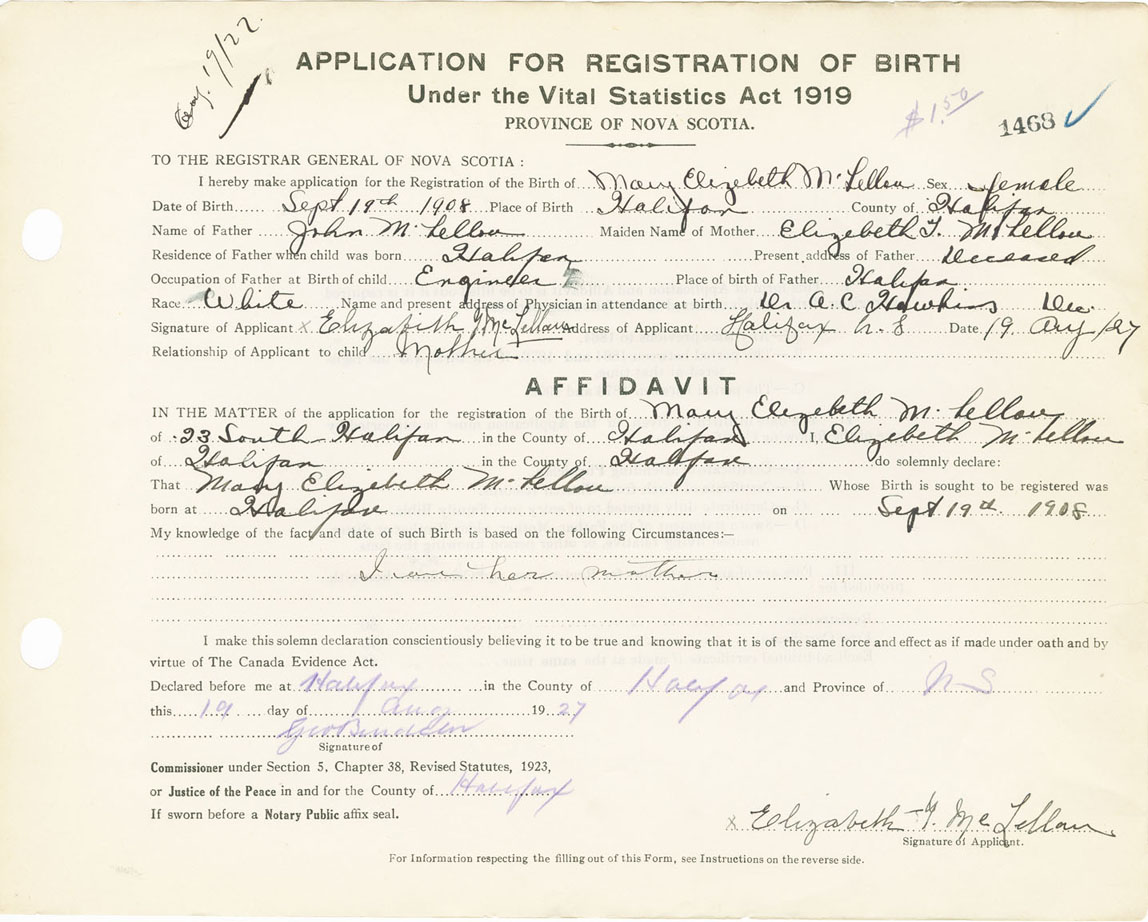 Aug. 19/27.
APPLICATION FOR REGISTRATION OF BIRTH
Under the Vital Statistics Act 1919
PROVINCE OF NOVA SCOTIA.
$1.50
1468 ✓
TO THE REGISTRAR GENERAL OF NOVA SCOTIA :
I hereby make application for the Registration of the Birth of Mary Elizabeth McLellan Sex female
Date of Birth Sept 19th 1908 Place of Birth Halifax County of Halifax
Name of Father John McLellan Maiden Name of Mother Elizabeth T. McLellan
Residence of Father when child was born Halifax Present address of Father Deceased
Occupation of Father at Birth of child Engineer Place of birth of Father Halifax
Race White Name and present address of Physician in attendance at birth Dr A. C. Hawkins Dec.
Signature of Applicant x Elizabeth McLellan Address of Applicant Halifax N.S Date 19 Aug /27
Relationship of Applicant to child Mother
AFFIDAVIT
IN THE MATTER of the application for the registration of the Birth of Mary Elizabeth McLellan
of 23 South Halifax in the County of Halifax I, Elizabeth McLellan
of Halifax in the County of Halifax do solemnly declare:
That Mary Elizabeth McLellan Whose Birth is sought to be registered was
born at Halifax on Sept 19th 1908
My knowledge of the fact and date of such Birth is based on the following Circumstances:—
I am her mother
I make this solemn declaration conscientiously believing it to be true and knowing that it is of the same force and effect as if made under oath and by
virtue of The Canada Evidence Act.
Declared before me at Halifax in the County of Halifax and Province of N S
this 19 day of Aug 1927
Signature of
Commissioner under Section 5, Chapter 38, Revised Statutes, 1923,
or Justice of the Peace in and for the County of Halifax
If sworn before a Notary Public affix seal.
x Elizabeth McLellan
Signature of Applicant.
For Information respecting the filling out of this Form, see Instructions on the reverse side.